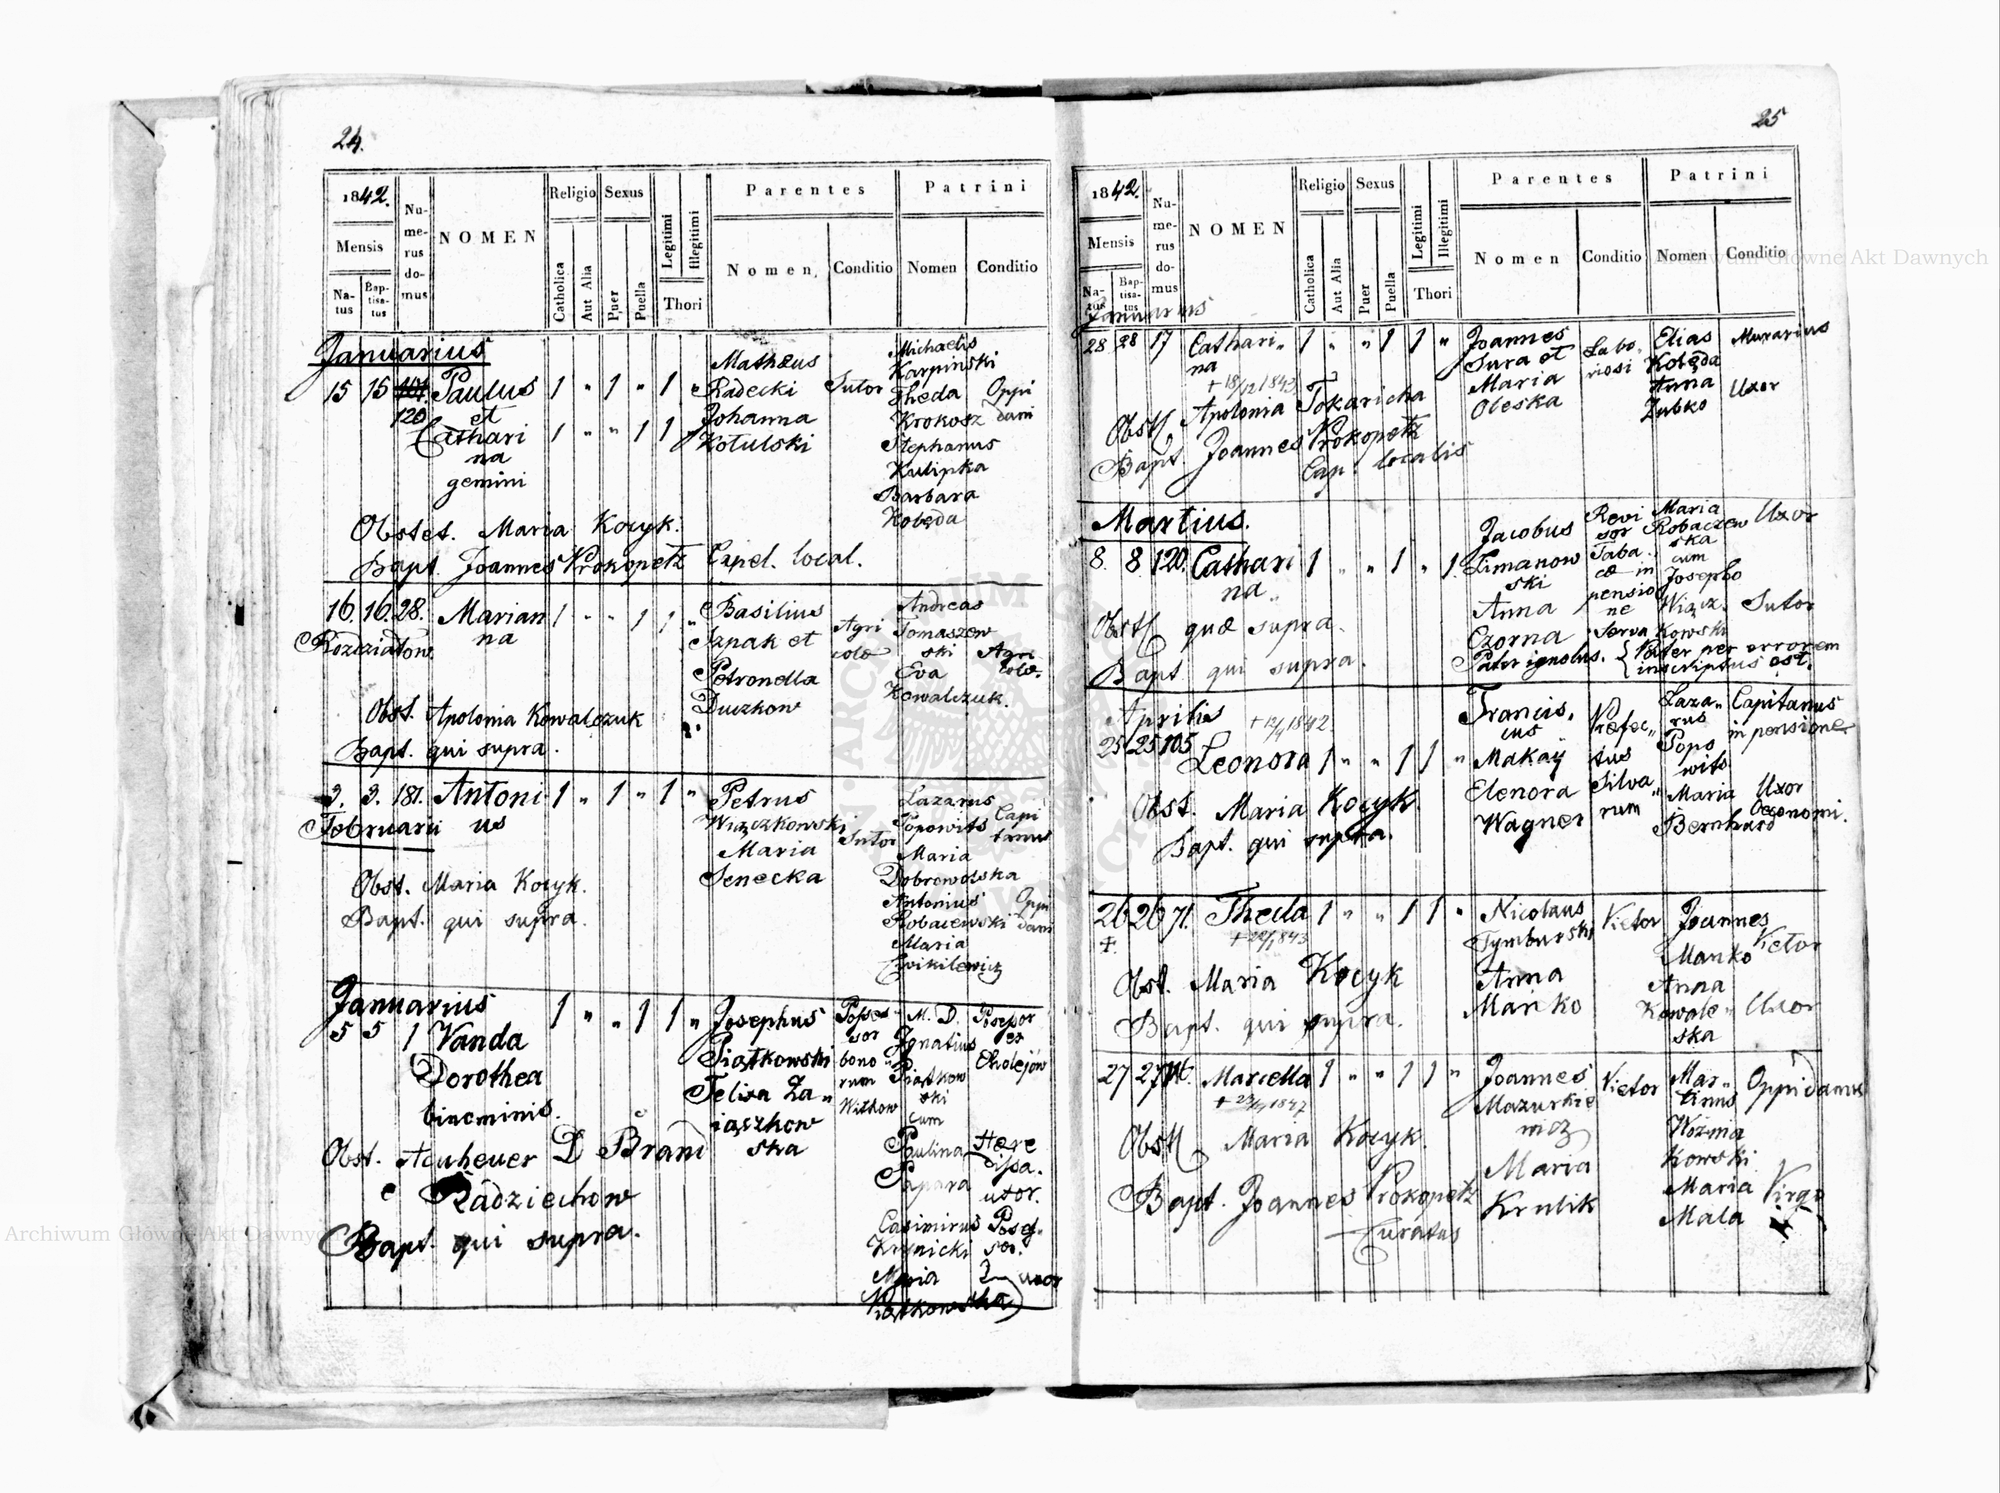 24.
1842.
Mensis
Na-
tus
Bap-
tisa-
tus
Nu-
me-
rus
do-
mus
NOMEN
Religio
Catholica
Aut Alia
Sexus
Puer
Puella
Legitimi
Illegitimi
Thori
Parentes
Nomen
Conditio
Patrini
Nomen
Conditio
Januarius
15 15 120 Paulus 1 " 1 " 1 "
et
Cathari 1 " " 1 1 "
na
gemini
Mathæus
Radecki
Johanna
Kotulski
Sutor
Michaelis
Karpiński
Theda
Krokosz
Stephanus
Kulipka
Barbara
Kolęda
Oppi
dani
Obstet. Maria Kocyk.
Bapt. Joannes Prokopetz Capel. local.
16. 16. 28. Marian 1 " " 1 1 "
na
Rozdziałow
Basilius
Szpak et
Petronella
Duczkow
Agri
colæ
Andreas
Tomaszew
ski
Eva
Kowalczuk.
Agri
colæ.
Obst. Apolonia Kowalczuk
Bapt. qui supra.
3. 3. 181. Antoni 1 " 1 " 1 "
Februarii us
Petrus
Wiączkowski
Maria
Senecka
Sutor
Lazarus
Popowits
Maria
Dobrowolska
Antonius
Robaczewski
Maria
Capi
tanus
Oppi
dani
Obst. Maria Kocyk.
Bapt. qui supra.
Januarius
5 5 1 Vanda 1 " " 1 1 "
Dorothea
binominis.
Josephus
Piątkowski
Felixa Za "
iączkow
ska
Posses
sor
bono "
rum
Witkow
M. D.
Ignatius
Piątkow
ski
cum
Paulina
Papara
Casimirus
Krynicki
Maria
Piątkowska
Possessor
ex
Cholejów
Hære
dissa.
uxor.
Posses
sor.
uxor
Obst. Neuheuer D Brand
e Radziechow
Bapt. qui supra.
25
1842.
Mensis
Na-
tus
Bap-
tisa-
tus
Nu-
me-
rus
do-
mus
NOMEN
Religio
Catholica
Aut Alia
Sexus
Puer
Puella
Legitimi
Illegitimi
Thori
Parentes
Nomen
Conditio
Patrini
Nomen
Conditio
Januarius
28 28 17 Cathari " 1 " " 1 1 "
na
+ 18/12 1843
Joannes
Sura et
Maria
Oleska
Labo
riosi
Elias
Kolęda
Anna
Zubko
Murarius
Uxor
Obst. Apolonia Tokaricha
Bapt. Joannes Prokopetz
Cap. localis
Martius.
8. 8 120. Cathari 1 " " 1 " 1
na "
Jacobus
Limanow
ski
Anna
Czorna
Pater ignotus.
Revi
sor
Taba "
cæ in
pensio
ne
Serva
Maria
Robaczew
ska
cum
Josepho
Wiącz.
kowski
Uxor
Sutor
{ Pater per errorem
inscriptus est.
Obst. quæ supra.
Bapt. qui supra.
Aprilis
+ 12/4 1842.
25 25 105 Leonora 1 " " 1 1 "
Francis.
cus
Makay
Elenora
Wagner
Præfec "
tus
Silva "
rum
Laza "
rus
Popo
wits
Maria
Bernhard
Capitanus
in pensione
Uxor
Oeconomi.
Obst. Maria Kocyk.
Bapt. qui supra.
26 26 71. Thecla 1 " " 1 1 "
+ 22/1 843
Nicolaus
Tymburski
Anna
Mańko
Vietor
Joannes
Mańko
Anna
Kowale "
ska
Vietor
Uxor
Obst. Maria Kocyk
Bapt. qui supra.
27 27 Marcella 1 " " 1 1 "
Joannes
Mazurkie
wicz
Maria
Krulik
Vietor
Mar "
tinus
Woźnia
kowski
Maria
Mala
Oppidanus
Virgo
Obst. Maria Kocyk.
Bapt. Joannes Prokopetz
Curatus
Archiwum Główne Akt Dawnych
Archiwum Główne Akt Dawnych